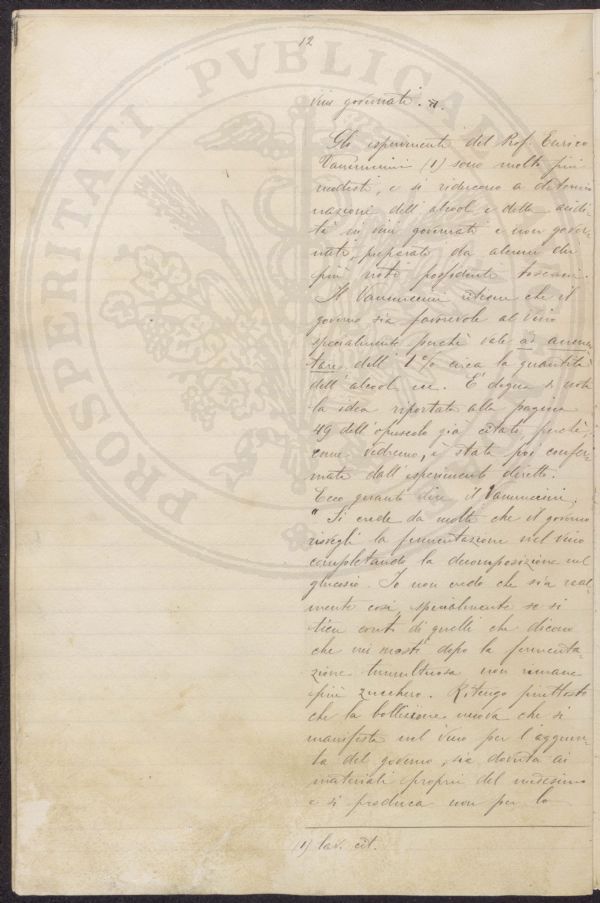 12
vini governati. "
Gli esperimenti del Prof. Enrico
Vannuccini (1) sono molto più
modesti, e si riducono a determi-
nazioni dell'alcool e della acidi-
tà in vini governati e non gover-
nati, preparati da alcuni dei
più noti possidenti toscani.
Il Vannuccini ritiene che il
governo sia favorevole al vino
specialmente perchè vale ad aumen-
tare dell'1% circa la quantità
dell'alcool ecc. È degna di nota
la idea riportata alla pagina
49 dell'opuscolo già citato, perchè,
come vedremo, è stata poi confer-
mata dall'esperimento diretto.
Ecco quanto dice il Vannuccini:
" Si crede da molti che il governo
risvegli la fermentazione nel vino
completando la decomposizione del
glucosio. Io non credo che sia real-
mente così, specialmente se si
tien conto di quelli che dicono
che nei mosti dopo la fermenta-
zione tumultuosa non rimane
più zucchero. Ritengo piuttosto
che la bollizione nuova che si
manifesta nel vino per l'aggiun-
ta del governo, sia dovuta ai
materiali proprii del medesimo
e si produca non per lo
(1) lav. cit.
PROSPERITATI PVBLICAE